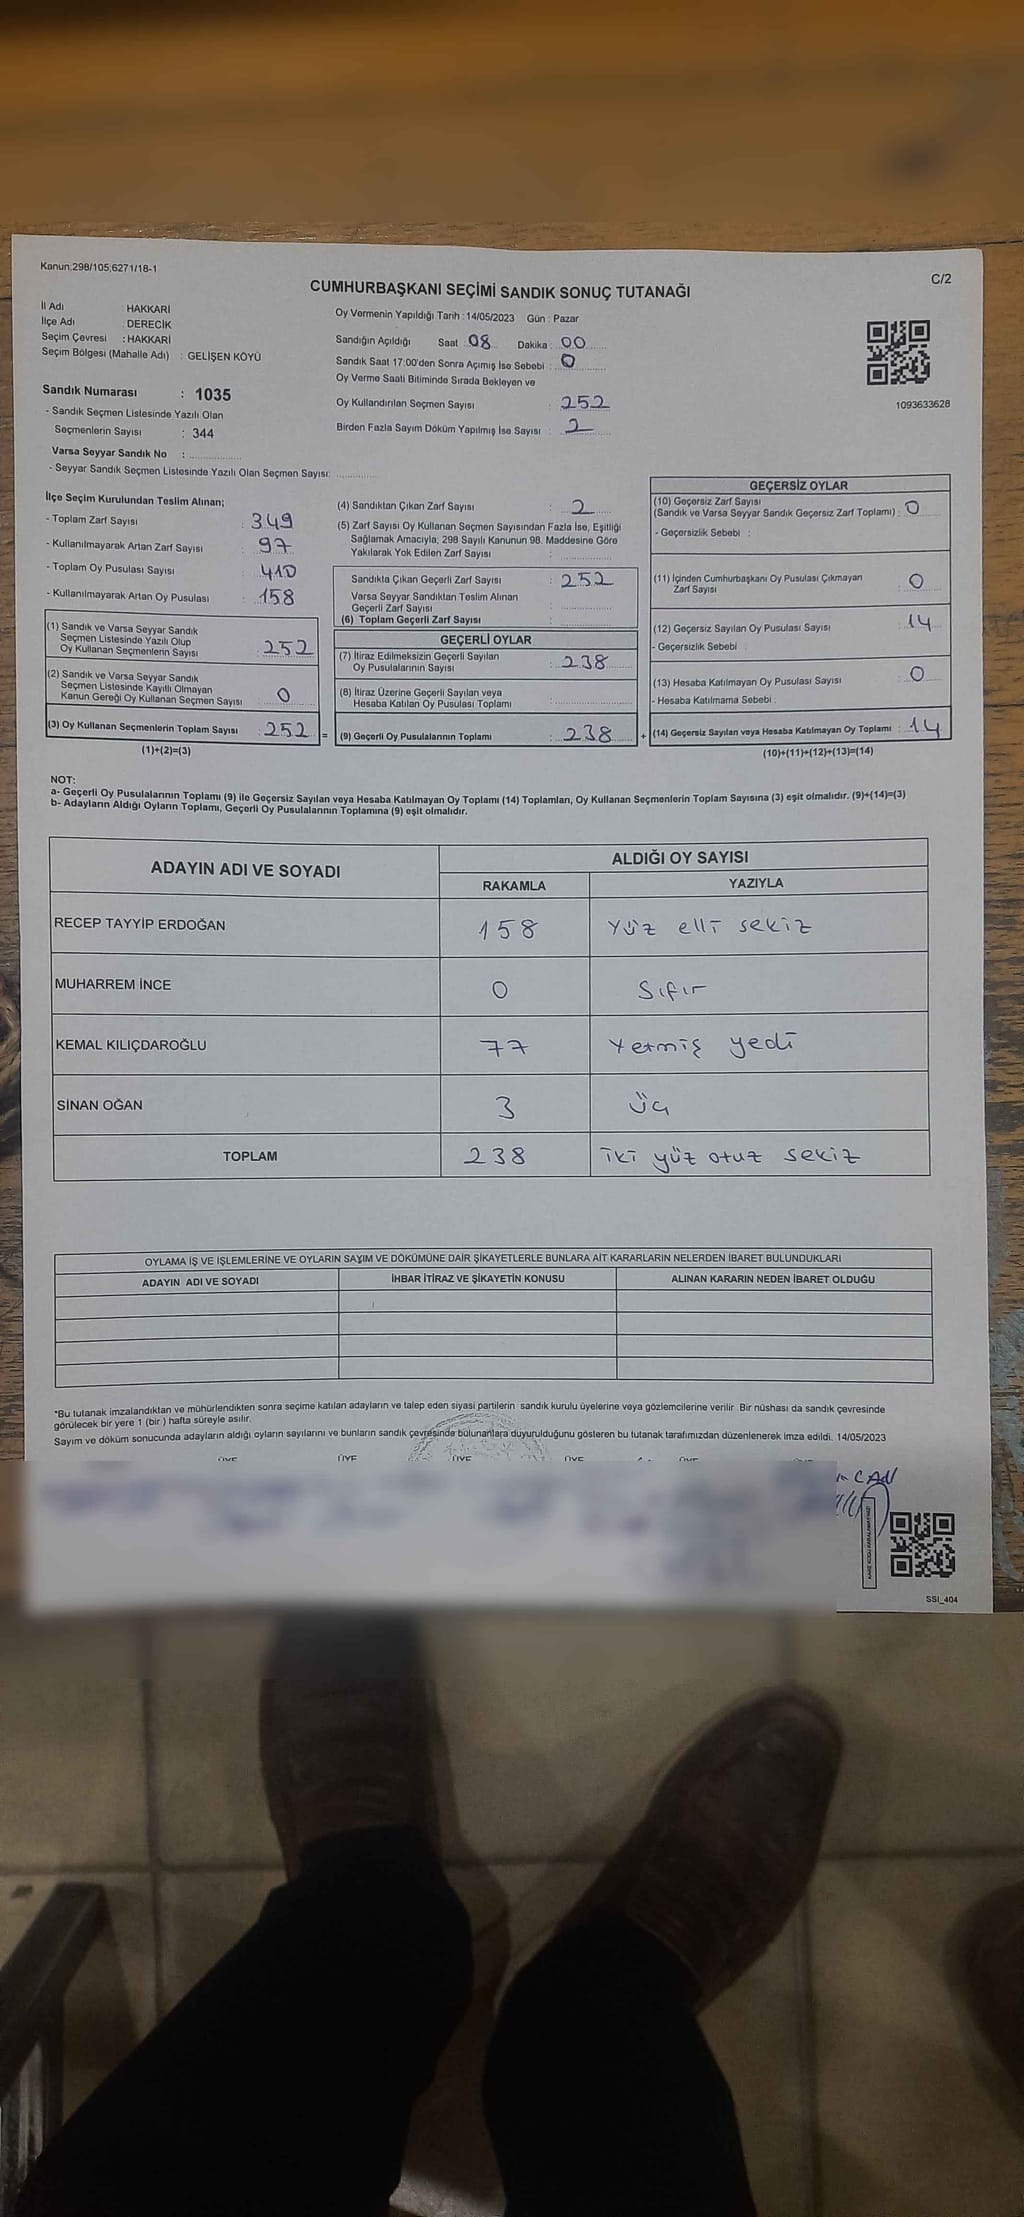 Kanun:298/105;6271/18-1
C/2
CUMHURBAŞKANI SEÇİMİ SANDIK SONUÇ TUTANAĞI
İl Adı : HAKKARİ
İlçe Adı : DERECİK
Seçim Çevresi : HAKKARİ
Seçim Bölgesi (Mahalle Adı) : GELİŞEN KÖYÜ
Sandık Numarası : 1035
- Sandık Seçmen Listesinde Yazılı Olan
Seçmenlerin Sayısı : 344
Varsa Seyyar Sandık No :
- Seyyar Sandık Seçmen Listesinde Yazılı Olan Seçmen Sayısı:
Oy Vermenin Yapıldığı Tarih : 14/05/2023 Gün : Pazar
Sandığın Açıldığı Saat : 08 Dakika : 00
Sandık Saat 17:00'den Sonra Açımış İse Sebebi : 0
Oy Verme Saati Bitiminde Sırada Bekleyen ve
Oy Kullandırılan Seçmen Sayısı : 252
Birden Fazla Sayım Döküm Yapılmış İse Sayısı : 2
1093633628
İlçe Seçim Kurulundan Teslim Alınan;
- Toplam Zarf Sayısı : 349
- Kullanılmayarak Artan Zarf Sayısı : 97
- Toplam Oy Pusulası Sayısı : 410
- Kullanılmayarak Artan Oy Pusulası : 158
(1) Sandık ve Varsa Seyyar Sandık
Seçmen Listesinde Yazılı Olup
Oy Kullanan Seçmenlerin Sayısı : 252
(2) Sandık ve Varsa Seyyar Sandık
Seçmen Listesinde Kayıtlı Olmayan
Kanun Gereği Oy Kullanan Seçmen Sayısı : 0
(3) Oy Kullanan Seçmenlerin Toplam Sayısı : 252 =
(1)+(2)=(3)
(4) Sandıktan Çıkan Zarf Sayısı : 2
(5) Zarf Sayısı Oy Kullanan Seçmen Sayısından Fazla İse, Eşitliği
Sağlamak Amacıyla; 298 Sayılı Kanunun 98. Maddesine Göre
Yakılarak Yok Edilen Zarf Sayısı :
Sandıkta Çıkan Geçerli Zarf Sayısı : 252
Varsa Seyyar Sandıktan Teslim Alınan
Geçerli Zarf Sayısı :
(6) Toplam Geçerli Zarf Sayısı :
GEÇERLİ OYLAR
(7) İtiraz Edilmeksizin Geçerli Sayılan
Oy Pusulalarının Sayısı : 238
(8) İtiraz Üzerine Geçerli Sayılan veya
Hesaba Katılan Oy Pusulası Toplamı :
(9) Geçerli Oy Pusulalarının Toplamı : 238 +
GEÇERSİZ OYLAR
(10) Geçersiz Zarf Sayısı
(Sandık ve Varsa Seyyar Sandık Geçersiz Zarf Toplamı) : 0
- Geçersizlik Sebebi :
(11) İçinden Cumhurbaşkanı Oy Pusulası Çıkmayan
Zarf Sayısı : 0
(12) Geçersiz Sayılan Oy Pusulası Sayısı : 14
- Geçersizlik Sebebi :
(13) Hesaba Katılmayan Oy Pusulası Sayısı : 0
- Hesaba Katılmama Sebebi :
(14) Geçersiz Sayılan veya Hesaba Katılmayan Oy Toplamı : 14
(10)+(11)+(12)+(13)=(14)
NOT:
a- Geçerli Oy Pusulalarının Toplamı (9) ile Geçersiz Sayılan veya Hesaba Katılmayan Oy Toplamı (14) Toplamları, Oy Kullanan Seçmenlerin Toplam Sayısına (3) eşit olmalıdır. (9)+(14)=(3)
b- Adayların Aldığı Oyların Toplamı, Geçerli Oy Pusulalarının Toplamına (9) eşit olmalıdır.
ADAYIN ADI VE SOYADI ALDIĞI OY SAYISI
RAKAMLA YAZIYLA
RECEP TAYYİP ERDOĞAN 158 Yüz elli sekiz
MUHARREM İNCE 0 Sıfır
KEMAL KILIÇDAROĞLU 77 Yetmiş yedi
SİNAN OĞAN 3 üç
TOPLAM 238 iki yüz otuz sekiz
OYLAMA İŞ VE İŞLEMLERİNE VE OYLARIN SAYIM VE DÖKÜMÜNE DAİR ŞİKAYETLERLE BUNLARA AİT KARARLARIN NELERDEN İBARET BULUNDUKLARI
ADAYIN ADI VE SOYADI İHBAR İTİRAZ VE ŞİKAYETİN KONUSU ALINAN KARARIN NEDEN İBARET OLDUĞU
*Bu tutanak imzalandıktan ve mühürlendikten sonra seçime katılan adayların ve talep eden siyasi partilerin sandık kurulu üyelerine veya gözlemcilerine verilir. Bir nüshası da sandık çevresinde
görülecek bir yere 1 (bir) hafta süreyle asılır.
Sayım ve döküm sonucunda adayların aldığı oyların sayılarını ve bunların sandık çevresinde bulunanlara duyurulduğunu gösteren bu tutanak tarafımızdan düzenlenerek imza edildi. 14/05/2023
ÜYE ÜYE ÜYE ÜYE ÜYE
CAN
SSI_404